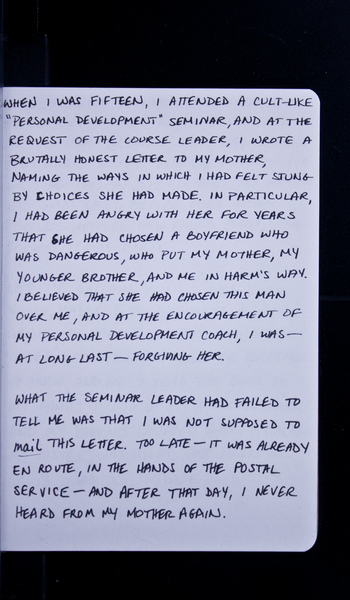 WHEN I WAS FIFTEEN, I ATTENDED A CULT-LIKE
"PERSONAL DEVELOPMENT" SEMINAR, AND AT THE
REQUEST OF THE COURSE LEADER, I WROTE A
BRUTALLY HONEST LETTER TO MY MOTHER,
NAMING THE WAYS IN WHICH I HAD FELT STUNG
BY CHOICES SHE HAD MADE. IN PARTICULAR,
I HAD BEEN ANGRY WITH HER FOR YEARS
THAT SHE HAD CHOSEN A BOYFRIEND WHO
WAS DANGEROUS, WHO PUT MY MOTHER, MY
YOUNGER BROTHER, AND ME IN HARM'S WAY.
I BELIEVED THAT SHE HAD CHOSEN THIS MAN
OVER ME, AND AT THE ENCOURAGEMENT OF
MY PERSONAL DEVELOPMENT COACH, I WAS—
AT LONG LAST — FORGIVING HER.

WHAT THE SEMINAR LEADER HAD FAILED TO
TELL ME WAS THAT I WAS NOT SUPPOSED TO
mail THIS LETTER. TOO LATE — IT WAS ALREADY
EN ROUTE, IN THE HANDS OF THE POSTAL
SERVICE — AND AFTER THAT DAY, I NEVER
HEARD FROM MY MOTHER AGAIN.